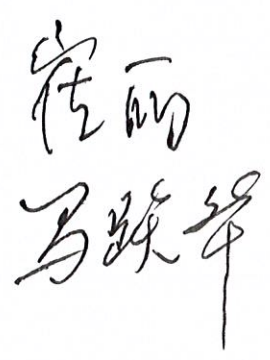 崔丽
马跃华